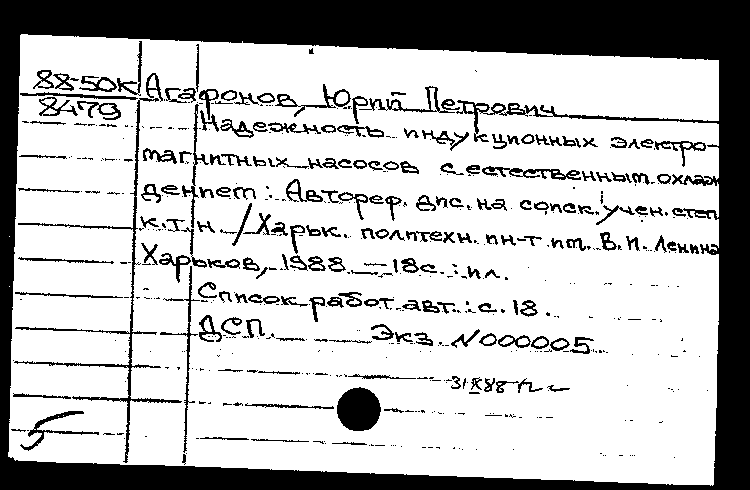 88-50К Агафонов, Юрий Петрович
8479
Надежность индукционных электро-
магнитных насосов с естественным охлаж
дением: Автореф. дис. на соиск. учен. степ
к.т.н. / Харьк. политехн. ин-т им. В. И. Ленина
Харьков, 1988 — 18 с. : ил.
Список работ авт.: с. 18.
ДСП. Экз. N000005
5